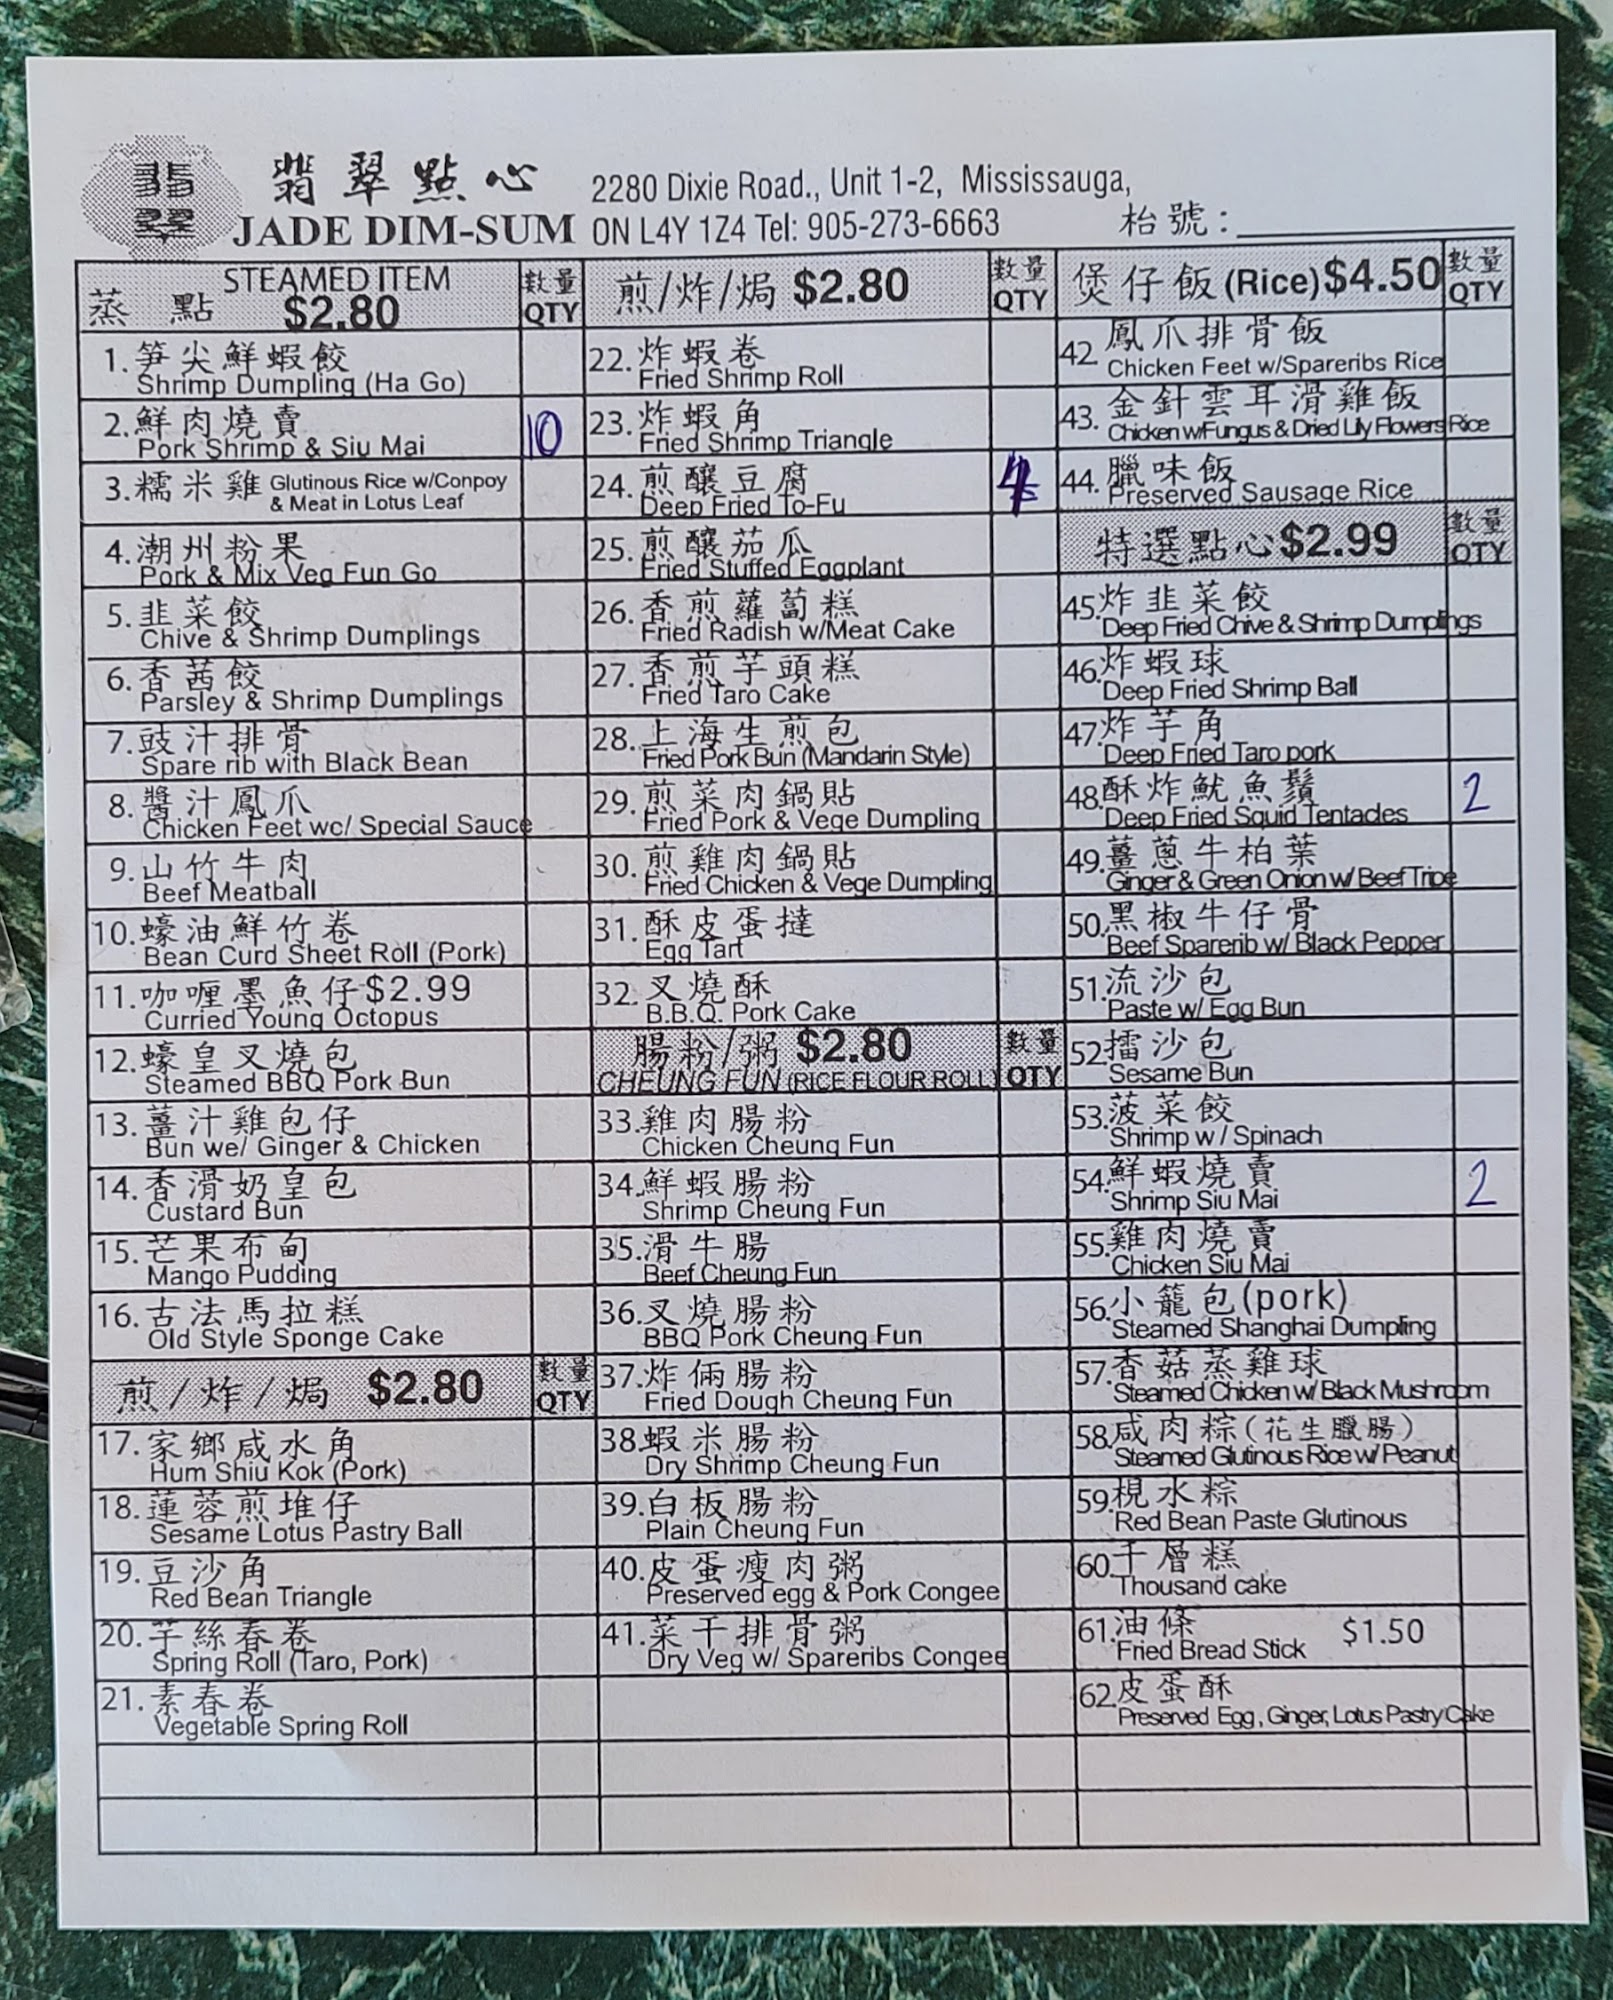 翡翠
翡翠點心
JADE DIM-SUM
2280 Dixie Road., Unit 1-2, Mississauga,
ON L4Y 1Z4 Tel: 905-273-6663
枱號:
蒸點 STEAMED ITEM $2.80 數量 QTY
1. 笋尖鮮蝦餃
Shrimp Dumpling (Ha Go)
2. 鮮肉燒賣
Pork Shrimp & Siu Mai 10
3. 糯米雞 Glutinous Rice w/Conpoy
& Meat in Lotus Leaf
4. 潮州粉果
Pork & Mix Veg Fun Go
5. 韭菜餃
Chive & Shrimp Dumplings
6. 香茜餃
Parsley & Shrimp Dumplings
7. 豉汁排骨
Spare rib with Black Bean
8. 醬汁鳳爪
Chicken Feet wc/ Special Sauce
9. 山竹牛肉
Beef Meatball
10. 蠔油鮮竹卷
Bean Curd Sheet Roll (Pork)
11. 咖喱墨魚仔 $2.99
Curried Young Octopus
12. 蠔皇叉燒包
Steamed BBQ Pork Bun
13. 薑汁雞包仔
Bun we/ Ginger & Chicken
14. 香滑奶皇包
Custard Bun
15. 芒果布甸
Mango Pudding
16. 古法馬拉糕
Old Style Sponge Cake
煎/炸/焗 $2.80 數量 QTY
17. 家鄉咸水角
Hum Shiu Kok (Pork)
18. 蓮蓉煎堆仔
Sesame Lotus Pastry Ball
19. 豆沙角
Red Bean Triangle
20. 芋絲春卷
Spring Roll (Taro, Pork)
21. 素春卷
Vegetable Spring Roll
煎/炸/焗 $2.80 數量 QTY
22. 炸蝦卷
Fried Shrimp Roll
23. 炸蝦角
Fried Shrimp Triangle
24. 煎釀豆腐
Deep Fried To-Fu 4
25. 煎釀茄瓜
Fried Stuffed Eggplant
26. 香煎蘿蔔糕
Fried Radish w/Meat Cake
27. 香煎芋頭糕
Fried Taro Cake
28. 上海生煎包
Fried Pork Bun (Mandarin Style)
29. 煎菜肉鍋貼
Fried Pork & Vege Dumpling
30. 煎雞肉鍋貼
Fried Chicken & Vege Dumpling
31. 酥皮蛋撻
Egg Tart
32. 叉燒酥
B.B.Q. Pork Cake
腸粉/粥 $2.80 數量
CHEUNG FUN (RICE FLOUR ROLL) QTY
33. 雞肉腸粉
Chicken Cheung Fun
34. 鮮蝦腸粉
Shrimp Cheung Fun
35. 滑牛腸
Beef Cheung Fun
36. 叉燒腸粉
BBQ Pork Cheung Fun
37. 炸倆腸粉
Fried Dough Cheung Fun
38. 蝦米腸粉
Dry Shrimp Cheung Fun
39. 白板腸粉
Plain Cheung Fun
40. 皮蛋瘦肉粥
Preserved egg & Pork Congee
41. 菜干排骨粥
Dry Veg w/ Spareribs Congee
煲仔飯 (Rice) $4.50 數量 QTY
42. 鳳爪排骨飯
Chicken Feet w/Spareribs Rice
43. 金針雲耳滑雞飯
Chicken w/Fungus & Dried Lily Flowers Rice
44. 臘味飯
Preserved Sausage Rice
特選點心 $2.99 數量 QTY
45. 炸韭菜餃
Deep Fried Chive & Shrimp Dumplings
46. 炸蝦球
Deep Fried Shrimp Ball
47. 炸芋角
Deep Fried Taro pork
48. 酥炸魷魚鬚
Deep Fried Squid Tentacles 2
49. 薑蔥牛柏葉
Ginger & Green Onion w/ Beef Tripe
50. 黑椒牛仔骨
Beef Sparerib w/ Black Pepper
51. 流沙包
Paste w/ Egg Bun
52. 擂沙包
Sesame Bun
53. 菠菜餃
Shrimp w/ Spinach
54. 鮮蝦燒賣
Shrimp Siu Mai 2
55. 雞肉燒賣
Chicken Siu Mai
56. 小籠包(pork)
Steamed Shanghai Dumpling
57. 香菇蒸雞球
Steamed Chicken w/ Black Mushroom
58. 咸肉粽(花生臘腸)
Steamed Glutinous Rice w/ Peanut
59. 梘水粽
Red Bean Paste Glutinous
60. 千層糕
Thousand cake
61. 油條 $1.50
Fried Bread Stick
62. 皮蛋酥
Preserved Egg, Ginger, Lotus Pastry Cake